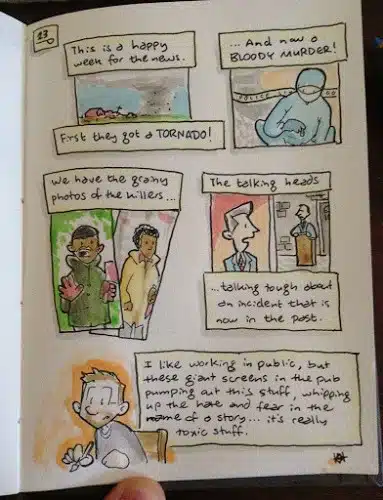 23
This is a happy
week for the news.
First they got a TORNADO!
...And now a
BLOODY MURDER!
POLICE
We have the grainy
photos of the killers...
The talking heads
...talking tough about
an incident that is
now in the past.
I like working in public, but
these giant screens in the pub
pumping out this stuff, whipping
up the hate and fear in the
name of a story... it's really
toxic stuff.